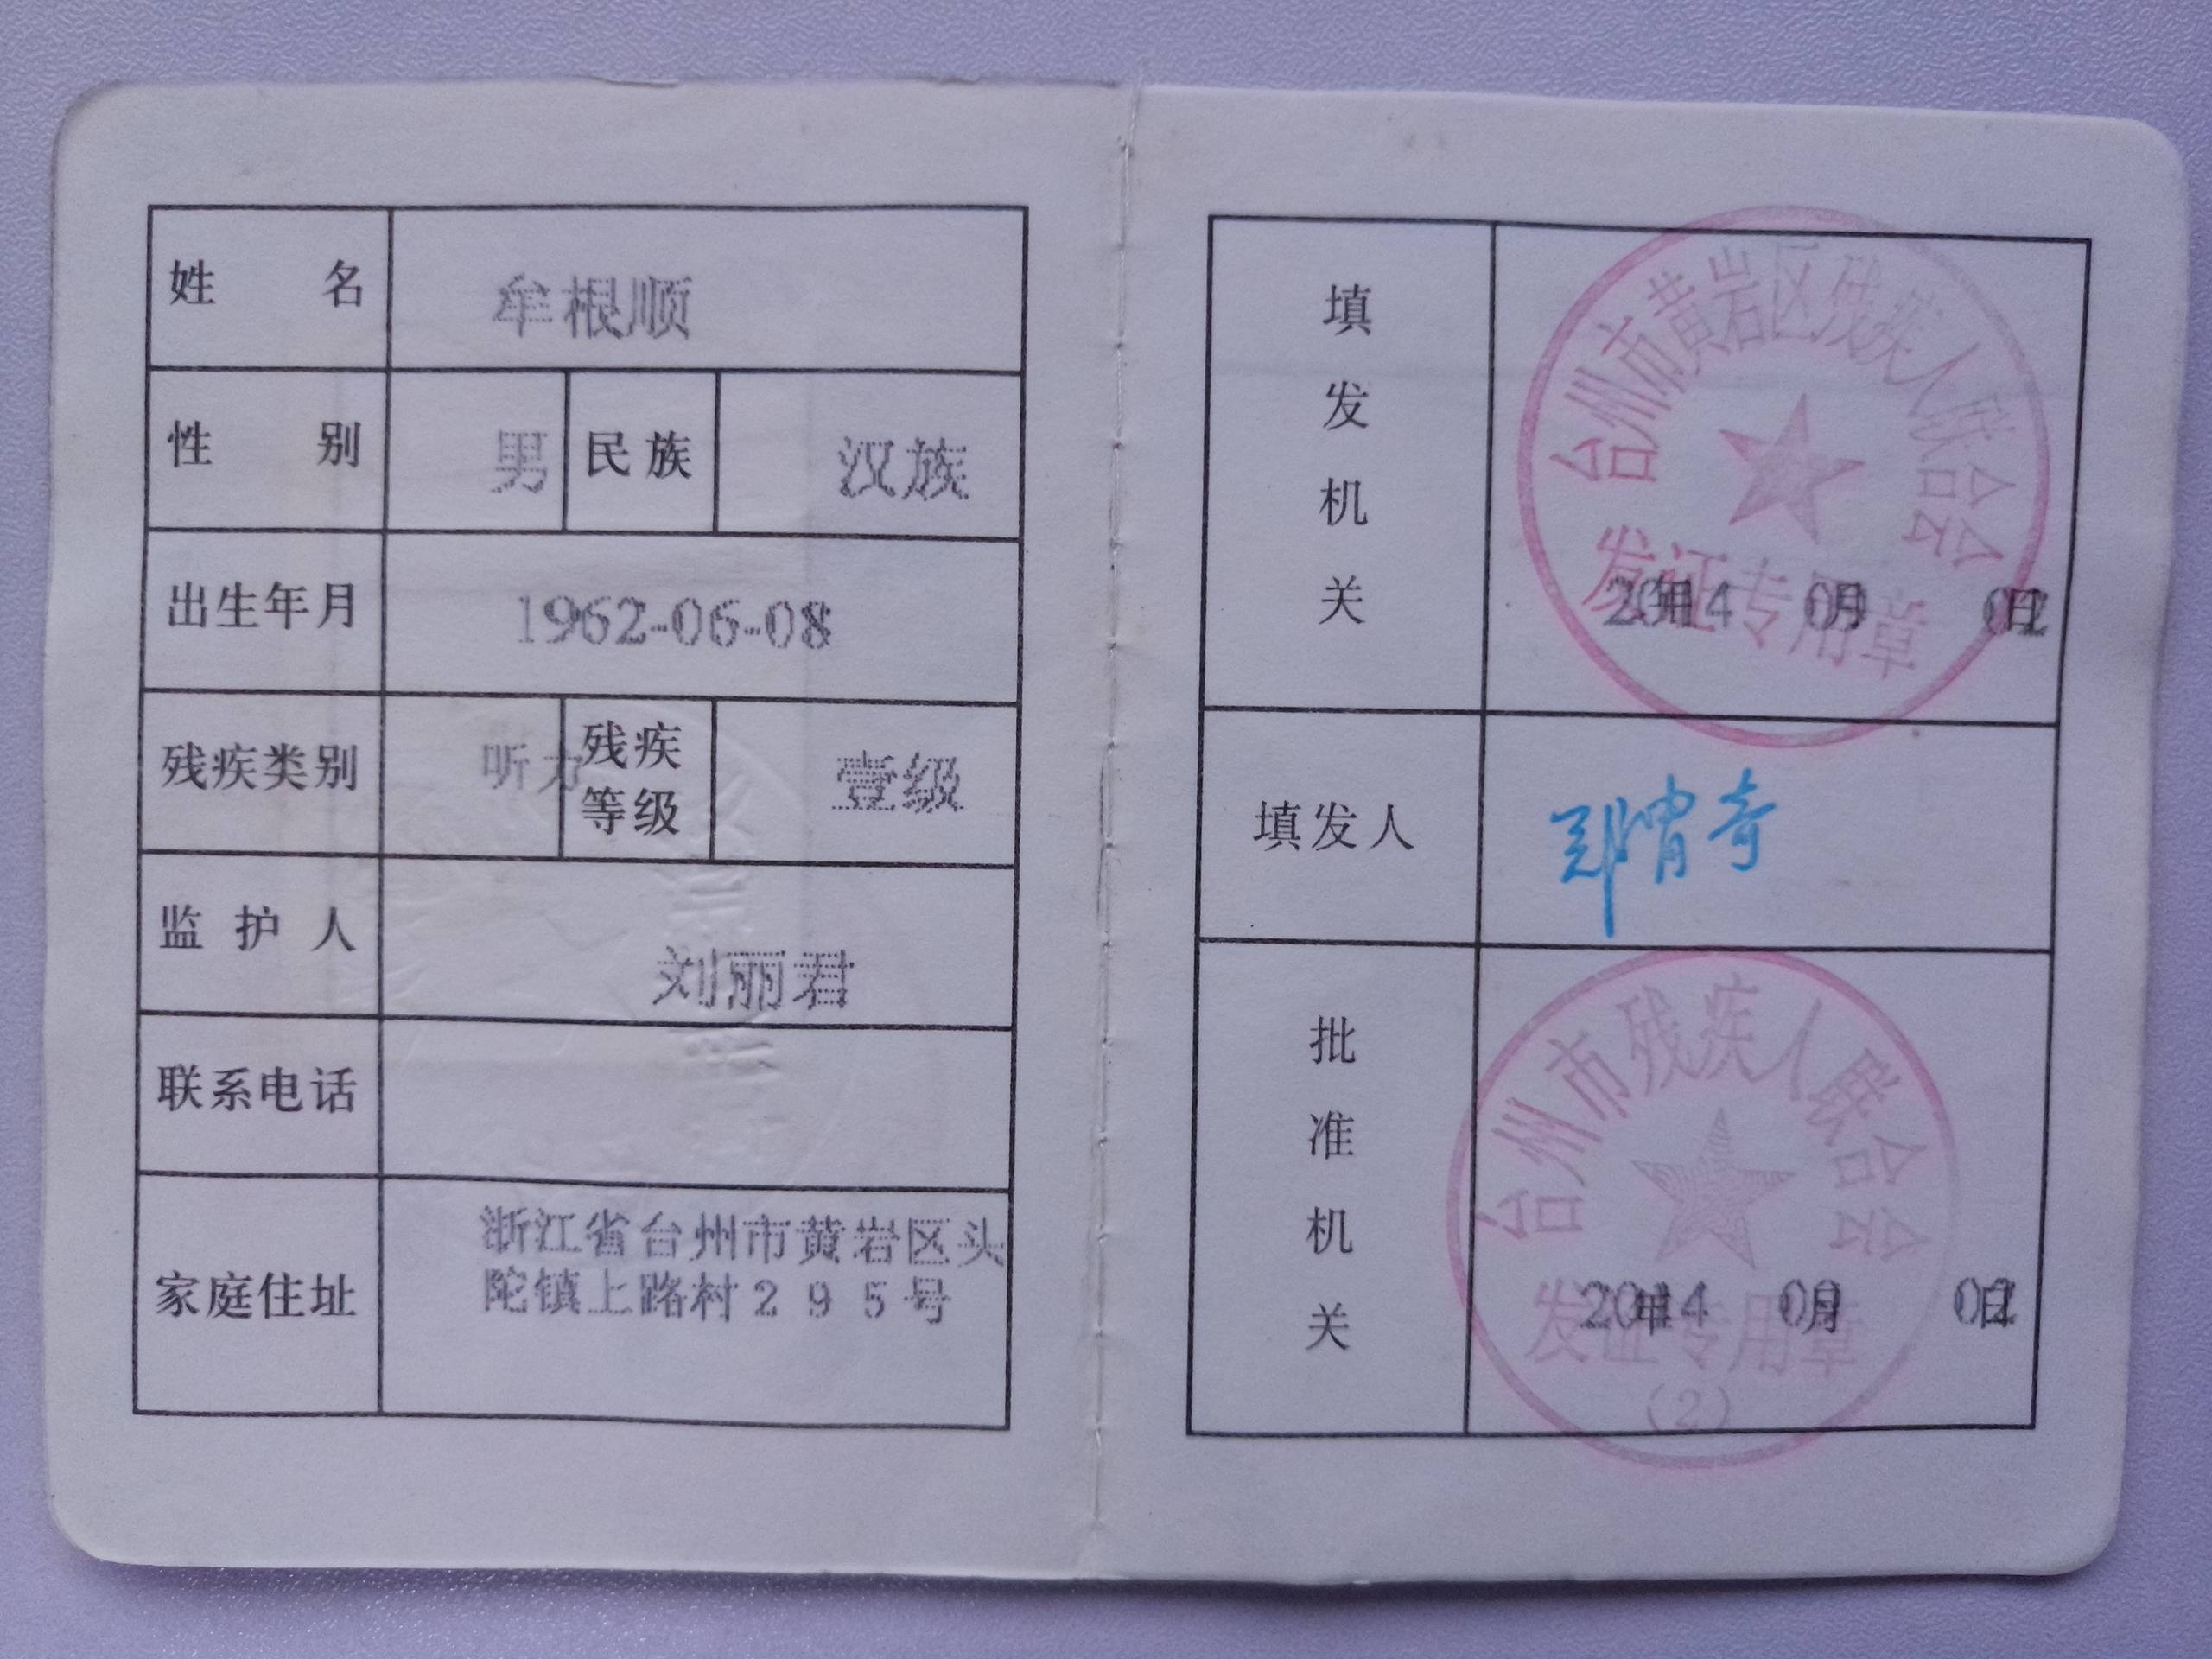 姓名 牟根顺
性别 男 民族 汉族
出生年月 1962-06-08
残疾类别 听力 残疾等级 壹级
监护人 刘丽君
联系电话
家庭住址 浙江省台州市黄岩区头
陀镇上路村295号
填发机关
台州市黄岩区残疾人联合会
发证专用章
2014年 09月 02日
填发人
批准机关
台州市残疾人联合会
发证专用章
(2)
2014年 09月 02日